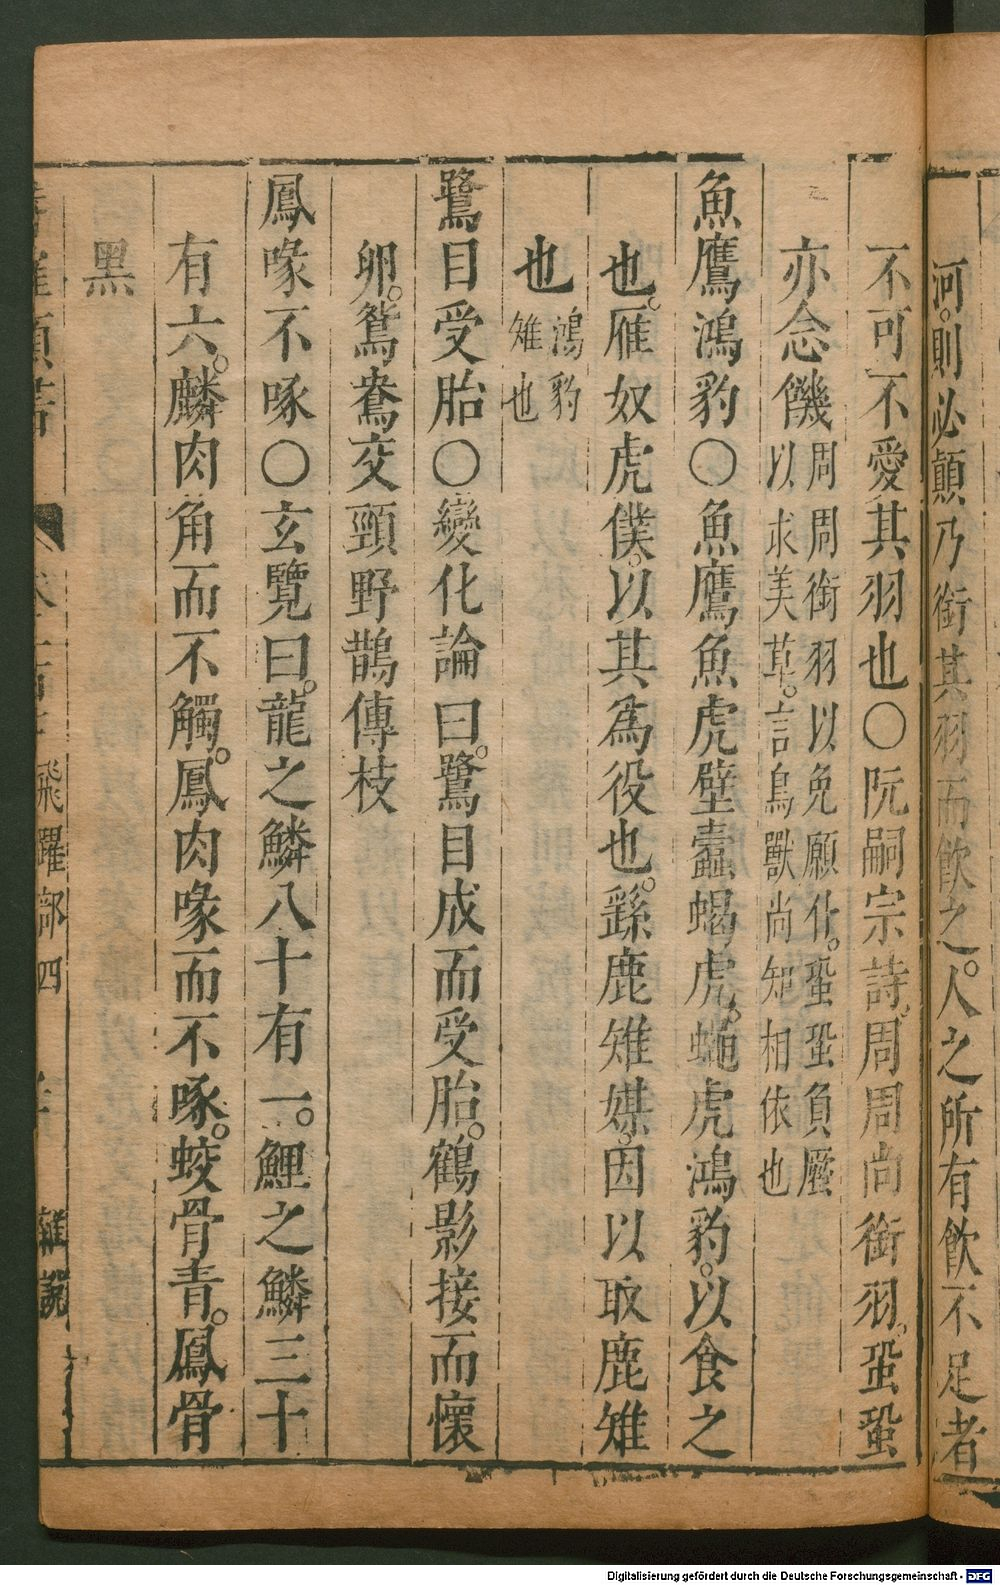 河。則必顛乃銜其羽而飲之。人之所有飲不足者
不可不愛其羽也〇阮嗣宗詩。周周尚銜羽。蛩蛩
亦念饑
周周銜羽以免願仆。蛩蛩負蟨
以求美草。言鳥獸尚知相依也
魚鷹鴻豹〇魚鷹魚虎壁蠹蝎虎。蝿虎鴻豹。以食之
也。雁奴虎僕。以其為役也。繇鹿雉媒。因以取鹿雉
也
鴻豹
雉也
鷺目受胎〇變化論曰。鷺目成而受胎。鶴影接而懷
卵。鴛鴦交頸野鵲傳枝
鳳喙不啄〇玄覽曰。龍之鱗八十有一。鯉之鱗三十
有六。麟肉角而不觸。鳳肉喙而不啄。蛟骨青。鳳骨
黑
飛躍部四
雜說
Digitalisierung gefördert durch die Deutsche Forschungsgemeinschaft - DFG